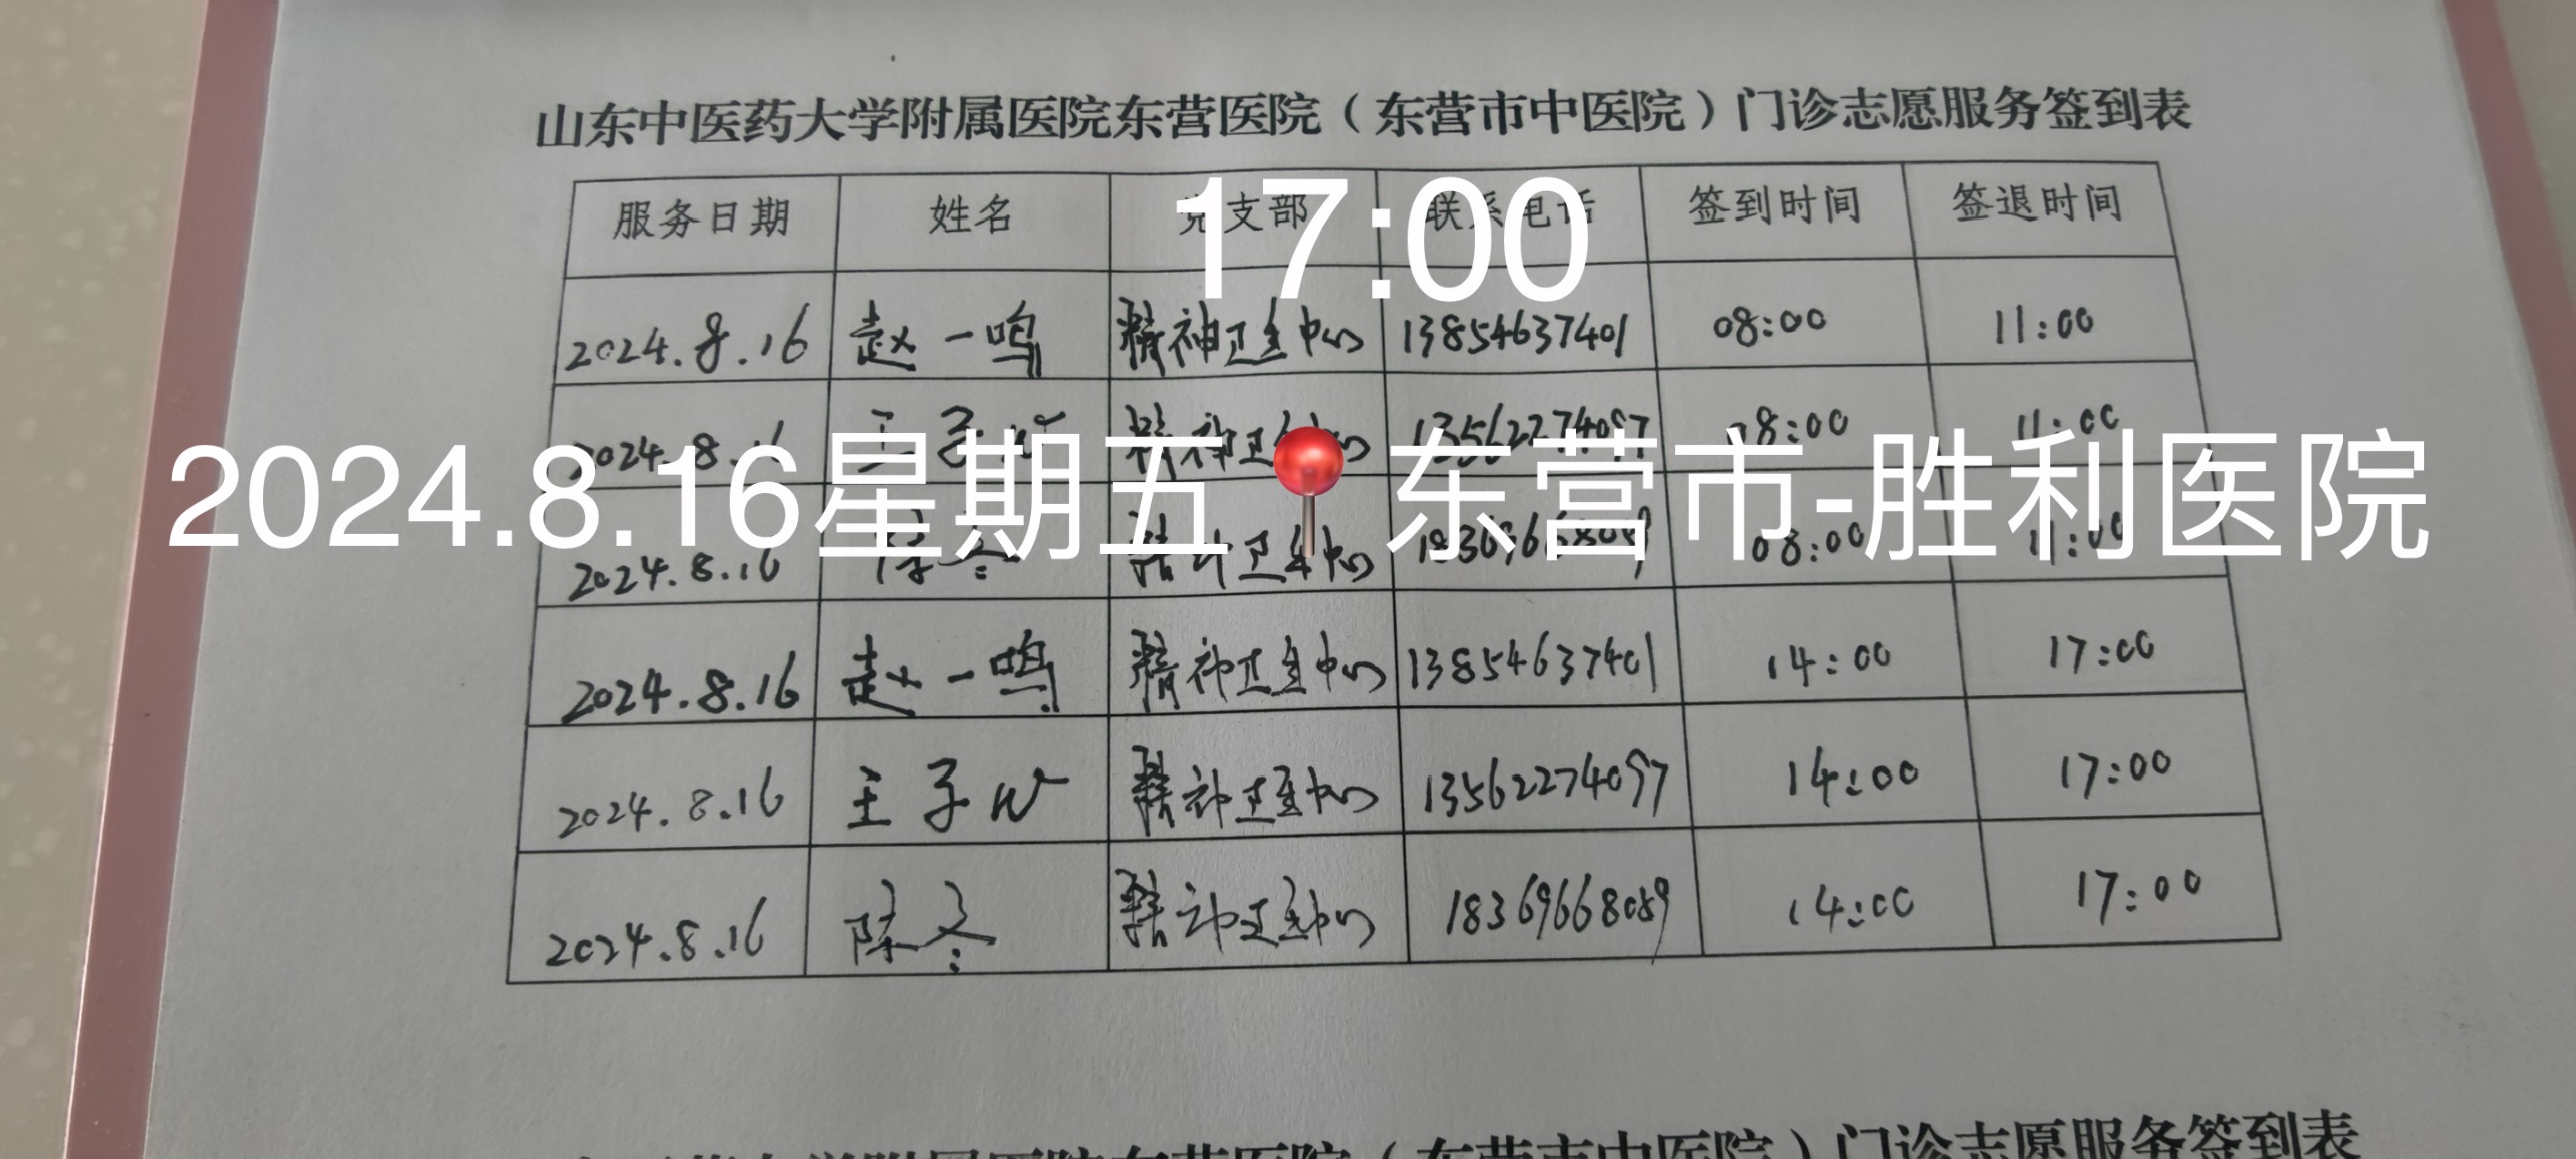 山东中医药大学附属医院东营医院（东营市中医院）门诊志愿服务签到表
17:00
服务日期 姓名 党支部 联系电话 签到时间 签退时间
2024.8.16 赵一鸣 精神卫生中心 13854637401 08:00 11:00
2024.8.16 王子 精神卫生中心 13562274097 08:00 11:00
2024.8.16星期五📍东营市-胜利医院
2024.8.16 陈冬 精神卫生中心 18369668089 08:00 11:00
2024.8.16 赵一鸣 精神卫生中心 13854637401 14:00 17:00
2024.8.16 王子 精神卫生中心 13562274097 14:00 17:00
2024.8.16 陈冬 精神卫生中心 18369668089 14:00 17:00
学附属医院东营医院（东营市中医院）门诊志愿服务签到表